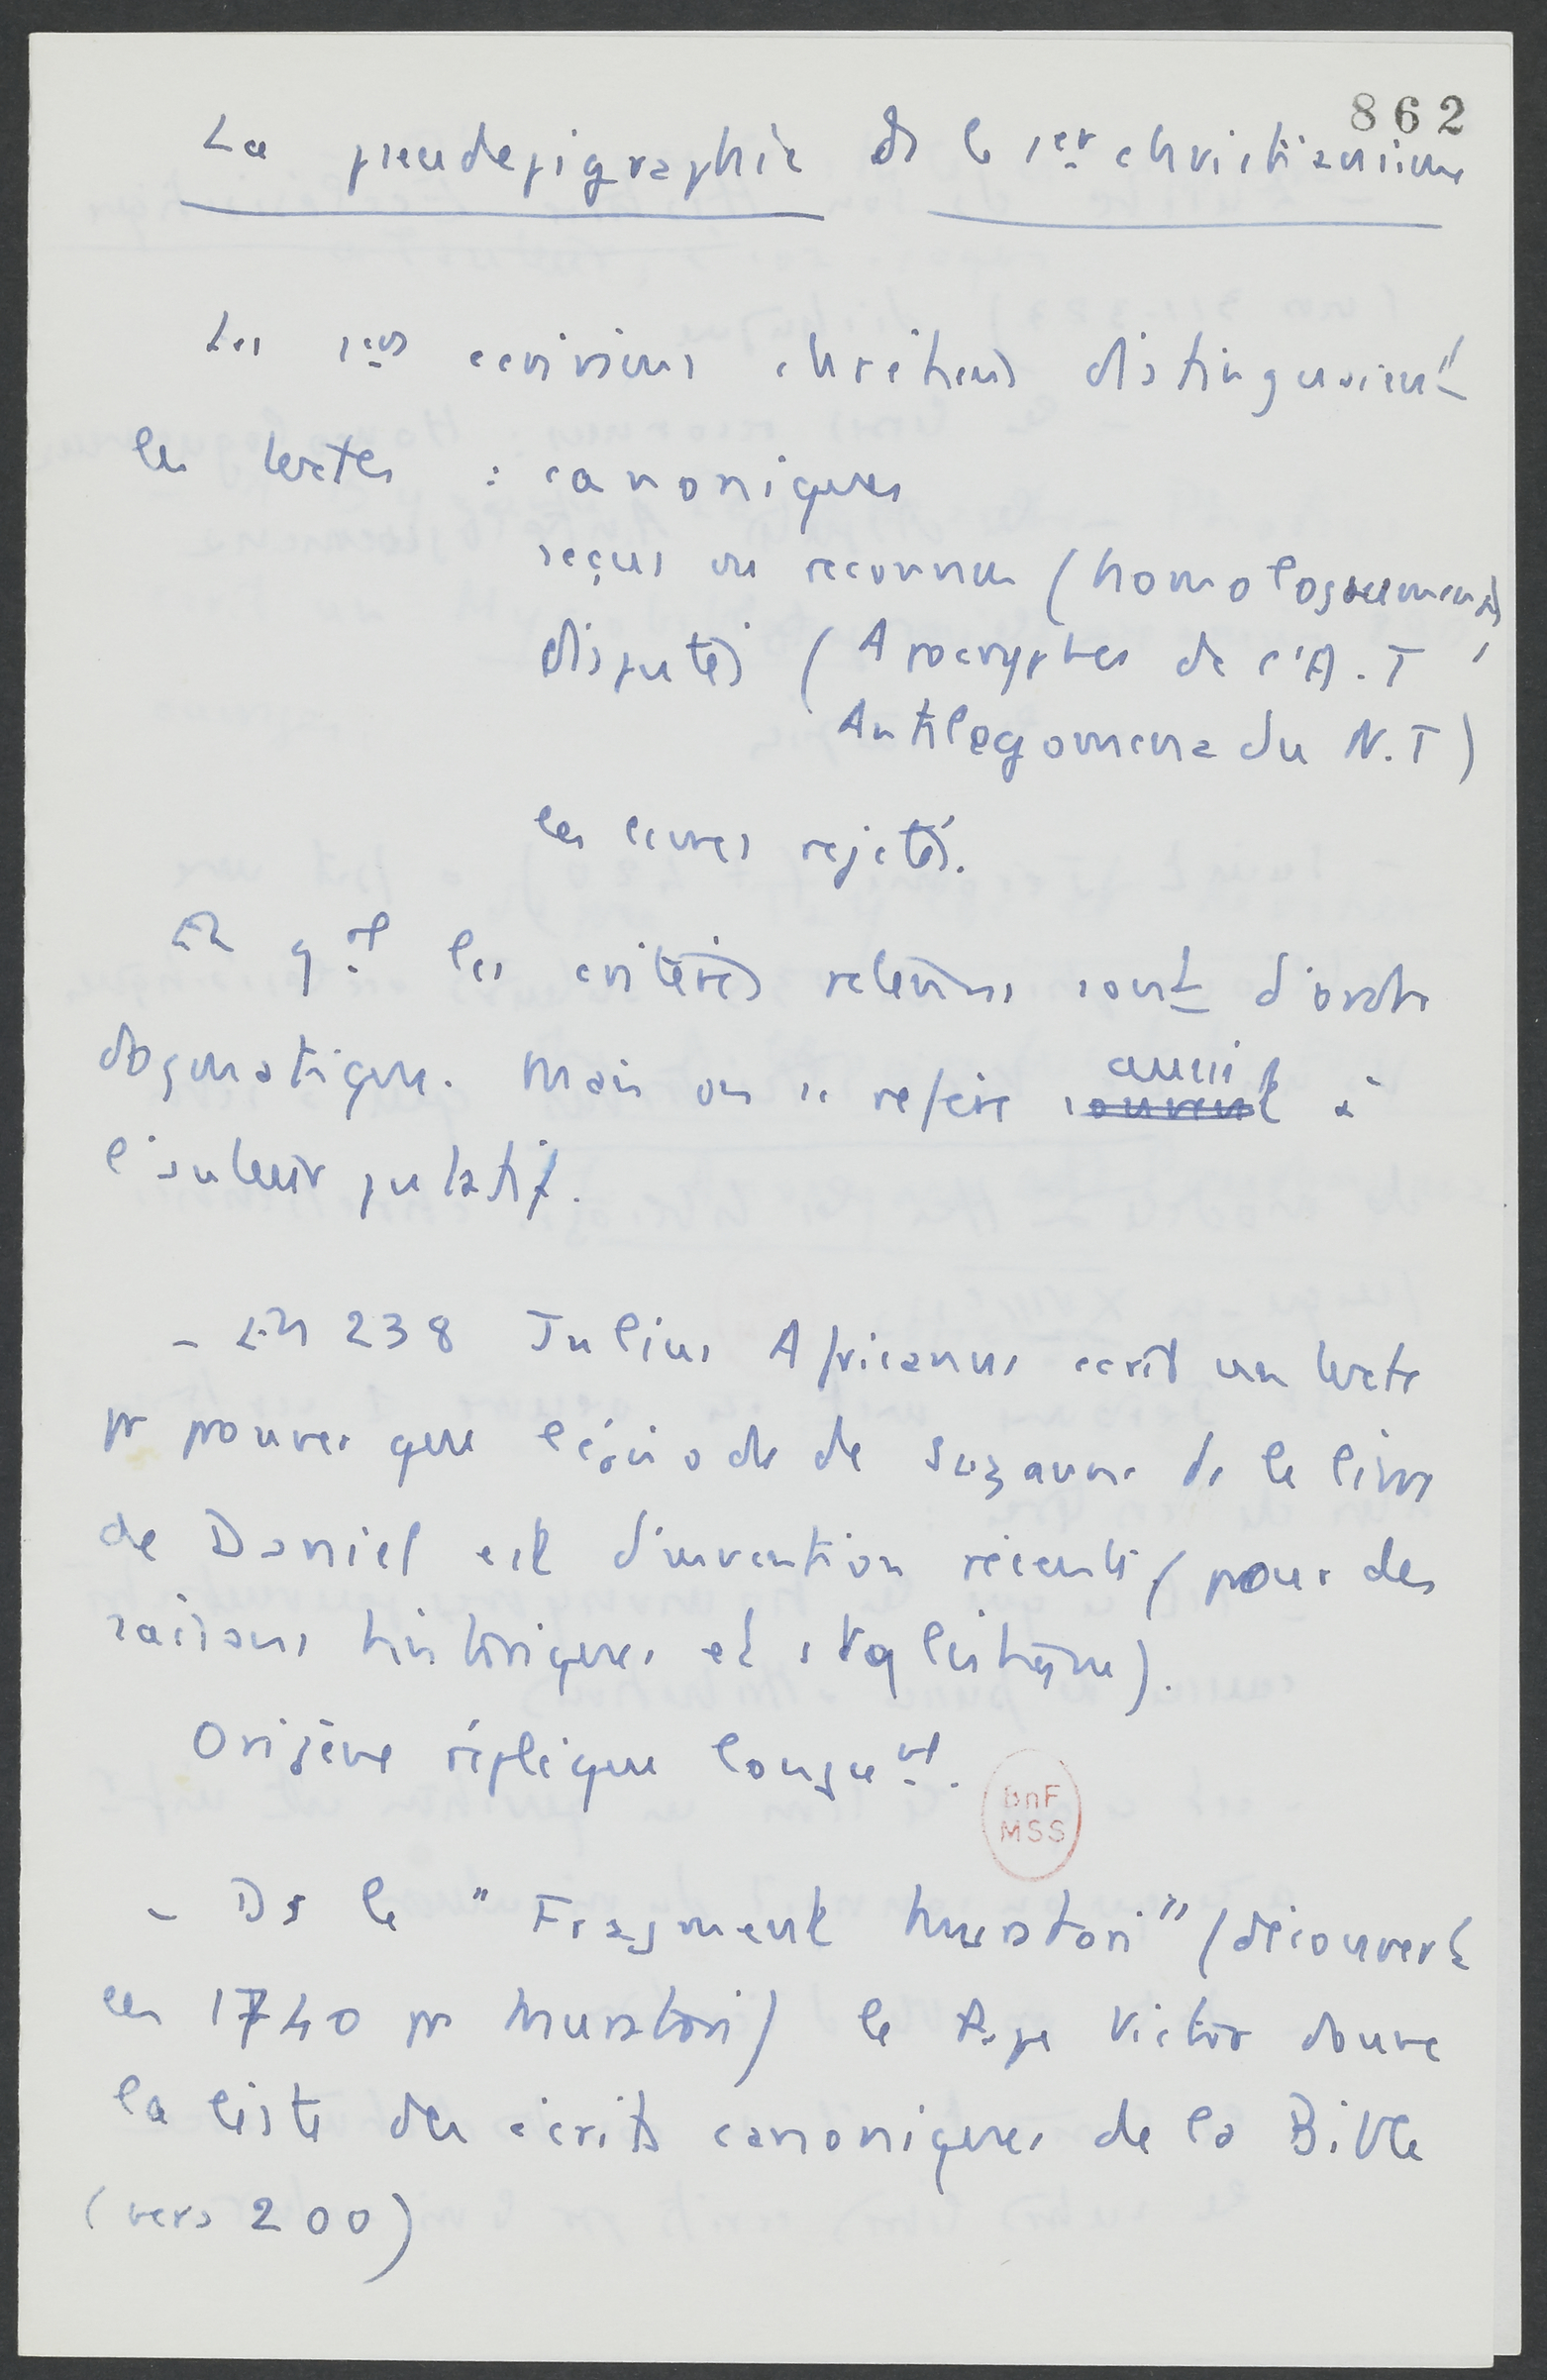 862
La pseudepigraphie ds le 1er christianisme
Les 1ers ecrivains chrétiens distinguaient
les textes : canoniques
reçus ou reconnus (homologoumena)
disputés (Apocryphes de l'A.T,
Antilegomena du N.T)
les livres rejetés.
En gal les critères retenus sont d'ordre
dogmatique. Mais on se refère souvent aussi à
l'auteur putatif.
- En 238 Julius Africanus ecrit un texte
pr prouver que l'épisode de Suzanne ds le livre
de Daniel est d'invention récente (pour des
raisons historiques et stylistiques).
Origène réplique longuemt.
- Ds le "Fragment Muratori" (découvert
en 1740 pr Muratori) le Pape Victor donne
la liste des écrits canoniques de la Bible
(vers 200)
BnF
MSS